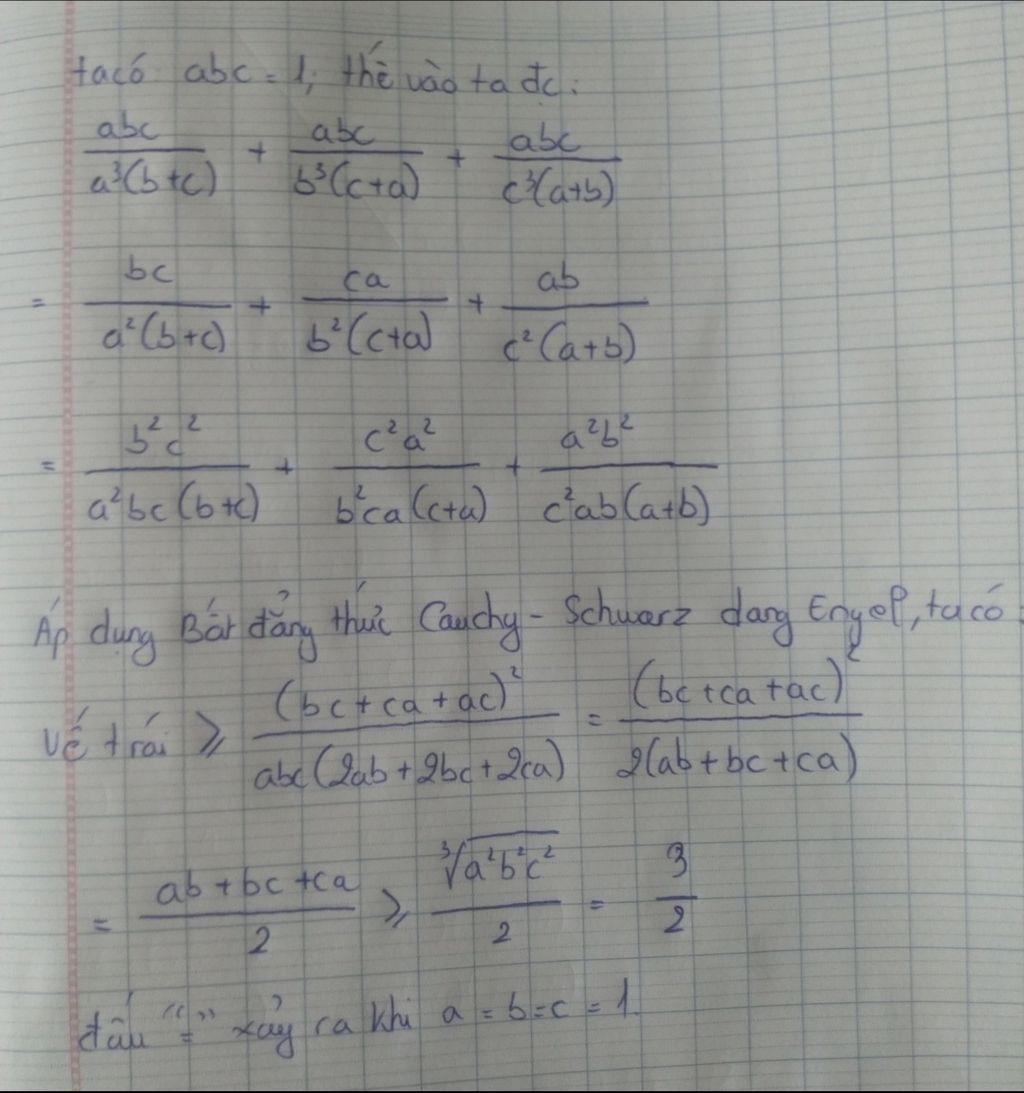 ta có abc = 1, thế vào ta đc:
abc/a³(b+c) + abc/b³(c+a) + abc/c³(a+b)
= bc/a²(b+c) + ca/b²(c+a) + ab/c²(a+b)
= b²c²/a²bc(b+c) + c²a²/b²ca(c+a) + a²b²/c²ab(a+b)
Áp dụng Bất đẳng thức Cauchy - Schwarz dạng Engel, ta có:
Vế trái ⩾ (bc+ca+ac)²/abc(2ab+2bc+2ca) = (bc+ca+ac)²/2(ab+bc+ca)
= ab+bc+ca/2 ⩾ ³√a²b²c²/2 = 3/2
dấu "=" xảy ra khi a = b = c = 1.